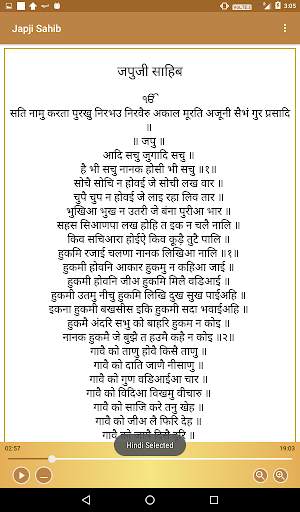 3:05
Japji Sahib
जपुजी साहिब
ੴ
सति नामु करता पुरखु निरभउ निरवैरु अकाल मूरति अजूनी सैभं गुर प्रसादि
॥
॥ जपु ॥
आदि सचु जुगादि सचु ॥
है भी सचु नानक होसी भी सचु ॥१॥
सोचै सोचि न होवई जे सोची लख वार ॥
चुपै चुप न होवई जे लाइ रहा लिव तार ॥
भुखिआ भुख न उतरी जे बंना पुरीआ भार ॥
सहस सिआणपा लख होहि त इक न चलै नालि ॥
किव सचिआरा होईऐ किव कूड़ै तुटै पालि ॥
हुकमि रजाई चलणा नानक लिखिआ नालि ॥१॥
हुकमी होवनि आकार हुकमु न कहिआ जाई ॥
हुकमी होवनि जीअ हुकमि मिलै वडिआई ॥
हुकमी उतमु नीचु हुकमि लिखि दुख सुख पाईअहि ॥
इकना हुकमी बखसीस इकि हुकमी सदा भवाईअहि ॥
हुकमै अंदरि सभु को बाहरि हुकम न कोइ ॥
नानक हुकमै जे बुझै त हउमै कहै न कोइ ॥२॥
गावै को ताणु होवै किसै ताणु ॥
गावै को दाति जाणै नीसाणु ॥
गावै को गुण वडिआईआ चार ॥
गावै को विदिआ विखमु वीचारु ॥
गावै को साजि करे तनु खेह ॥
गावै को जीअ लै फिरि देह ॥
गावै को
Hindi Selected
02:57
19:03